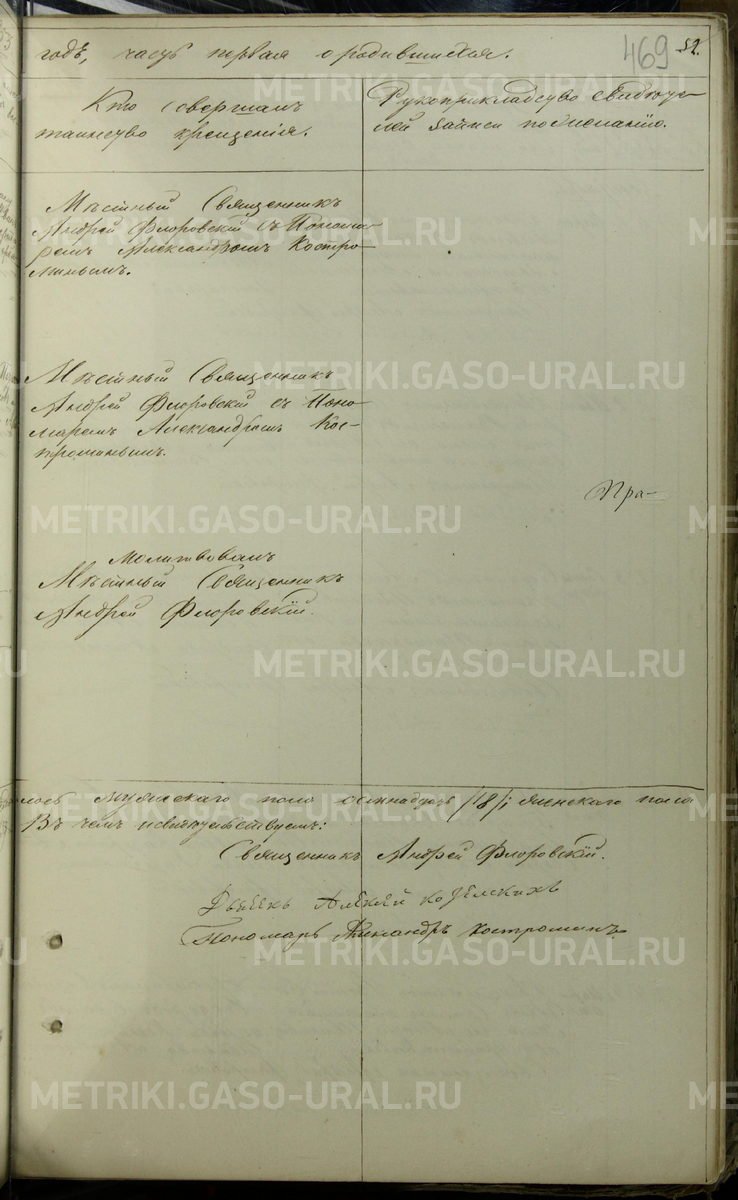 годъ, часть первая о родившихся.
469 52.
Кто совершалъ
таинство крещенія.
Рукоприкладство свидѣте-
лей записи по желанію.
Мѣстный Священникъ
Андрей Флоровскій съ Понома-
ремъ Александромъ Костро-
минымъ.
Мѣстный Священникъ
Андрей Флоровскій съ Поно-
маремъ Александромъ Кос-
троминымъ.
Пра-
Молитвовалъ
Мѣстный Священникъ
Андрей Флоровскій.
мужескаго пола /18/ женскаго пола
Въ чемъ и свидѣтельствуемъ:
Священникъ Андрей Флоровскій.
Дьячекъ Алексѣй
Пономарь Александръ Костроминъ.
METRIKI.GASO-URAL.RU